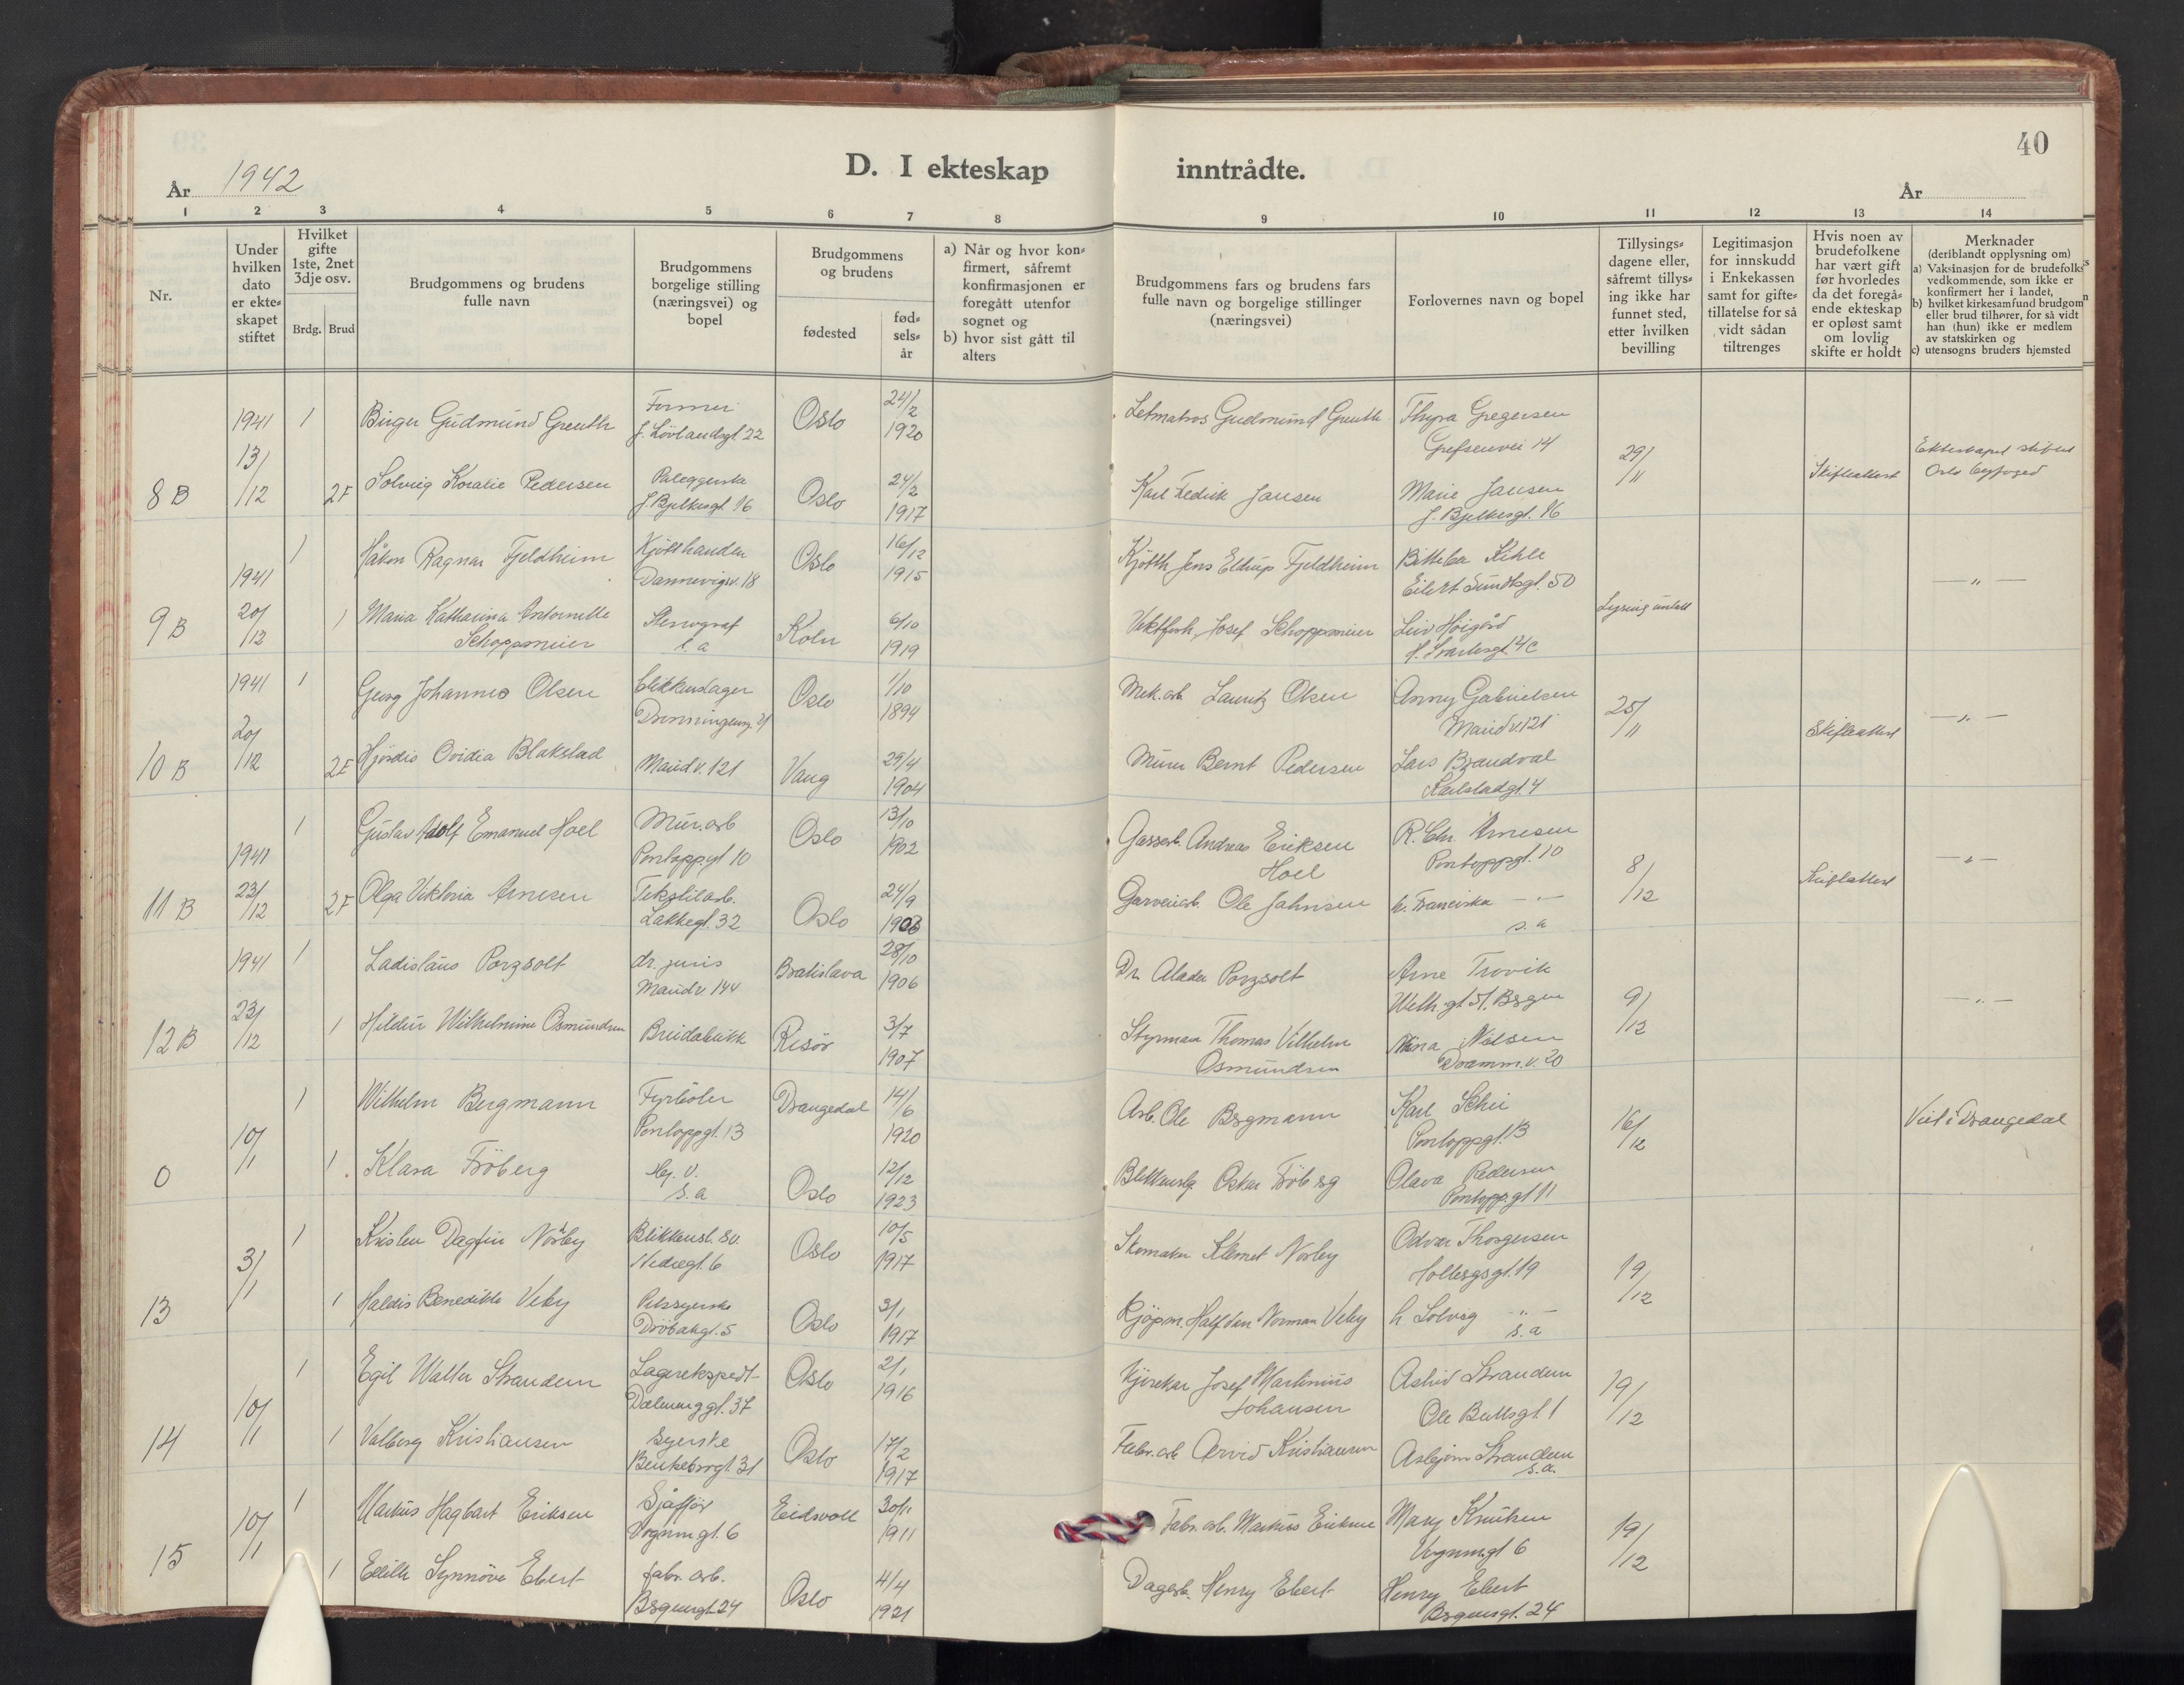 D. I ekteskap inntrådte.
40
År 1942
År
1 2 3 4 5 6 7 8 9 10 11 12 13 14
Nr.
Under hvilken dato er ekte=skapet stiftet
Hvilket gifte 1ste, 2net 3dje osv.
Brdg. Brud
Brudgommens og brudens fulle navn
Brudgommens borgelige stilling (næringsvei) og bopel
Brudgommens og brudens
fødested
fød=sels=år
a) Når og hvor kon=firmert, såfremt konfirmasjonen er foregått utenfor sognet og
b) hvor sist gått til alters
Brudgommens fars og brudens fars fulle navn og borgelige stillinger (næringsvei)
Forlovernes navn og bopel
Tillysings=dagene eller, såfremt tillys=ing ikke har funnet sted, etter hvilken bevilling
Legitimasjon for innskudd i Enkekassen samt for gifte=tillatelse for så vidt sådan tiltrenges
Hvis noen av brudefolkene har vært gift før hvorledes da det foregå=ende ekteskap er opløst samt om lovlig skifte er holdt
Merknader (deriblandt opplysning om)
a) Vaksinasjon for de brudefolks vedkommende, som ikke er konfirmert her i landet,
b) hvilket kirkesamfund brudgom eller brud tilhører, for så vidt han (hun) ikke er medlem av statskirken og
c) utensogns bruders hjemsted
8 B 1941 13/12 1 Birger Gudmund Greuth Former J. Lövlandsgt 22 Oslo 24/2 1920 Letmatros Gudmund Greuth Thyra Gregersen Grefsenvei 14 29/11
2F Solveig Koralie Pedersen J. Bjelkesgt. 16 Oslo 24/2 1917 Karl Fredrik Jansen Marie Jansen J. Bjelkesgt. 16 Skifteattest Oslo byfoged
9 B 1941 20/12 1 Håkon Ragnar Fjeldheim Kjötthandler Dannevigsv. 18 Oslo 16/12 1915 Kjötth Jens Eltrup Fjeldheim Kihle Eilert Sundtsgt. 50 — " —
1 Maria Katharina Antornette Schoppmeier Stenograf s. a Köln 6/10 1919 Josef Schoppmeier Leiv Höigård
10 B 1941 20/12 1 Georg Johannes Olsen Blikkenslager Oslo 1/10 1894 Mek. arb. Lauritz Olsen Anny Gabrielsen Maudv. 121 25/11
2F Hjördis Ovidia Blakstad Maudv. 121 Vang 29/4 1904 Murer Bernt Pedersen Lars Brandval Karlstadgt. 4 Skifteattest — " —
11 B 1941 23/12 1 Gustav Adolf Emanuel Hoel Mur. arb Pontoppgt 10 Oslo 13/10 1902 Andreas Eriksen Hoel R. Chr. Arnesen Pontoppgt. 10 8/12
2F Olga Viktoria Arnesen Tekstilarb. Lakkegt. 32 Oslo 24/9 1903 Garveriarb. Ole Jahnsen fr. Franciska — " — s. a Skifteattest — " —
12 B 1941 23/12 1 Ladislaus Porzsolt dr. juris Maudv. 144 Bratislava 28/10 1906 Dr. Aladar Porzsolt Arne Trovik Welh.gt. 51. Bergen 9/12 — " —
1 Hildur Wilhelmine Osmundsen Breidablikk Risör 3/7 1907 Styrmann Thomas Vilhelm Osmundsen Nina Nilsen Dramm.v. 20
0 10/1 1 Wilhelm Bergmann Fyrböter Pontoppgt. 13 Drangedal 14/6 1920 Arb. Ole Bergmann Karl Schei Pontoppgt. 13 16/12 Viet i Drangedal
1 Klara Fröberg Hj. v. s. a Oslo 12/12 1923 Blikkenslg. Oskar Fröberg Olava Pedersen Pontoppgt 11
13 3/1 1 Kristen Dagfin Norby Blikkensl. sv. Nedregt. 6 Oslo 10/5 1917 Skomaker Klemet Norby Odvar Thorgersen Holbergsgt. 19 19/12
1 Haldis Benedikte Veby Pelssyerske Dröbakgt. 5 Oslo 3/1 1917 Kjöpm. Halfdan Norman Veby fr Solveig — " — s. a
14 10/1 1 Egil Walter Strandem Lagerekspedt. Dælenenggt. 37 Oslo 2/1 1916 Josef Martinius Johansen Astrid Strandem Ole Bullsgt. 1 19/12
1 Valborg Kristiansen Syerske Oslo 17/2 1917 Fabr. arb Arvid Kristiansen Asbjörn Strandem s. a.
15 10/1 1 Markus Hagbart Eriksen Sjåfför Vognmgt. 6 Eidsvoll 30/11 1911 Fabr. arb. Markus Eriksen Mary Knutsen Vognm.gt 6 19/12
1 Edith Synnöve Ebert fabr. arb. Bergensgt. 24 Oslo 4/4 1921 Dagarb. Henry Ebert Henry Ebert Bergensgt. 24